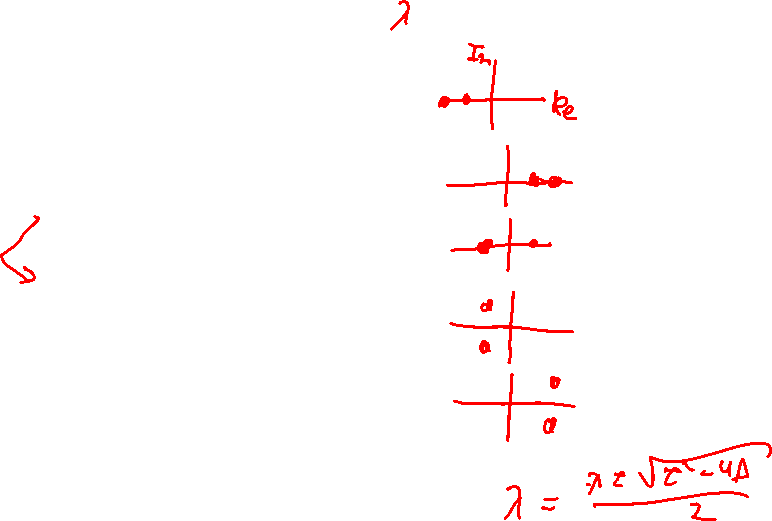 λ
Im
Re
λ = λ ± √τ² - 4Δ / 2